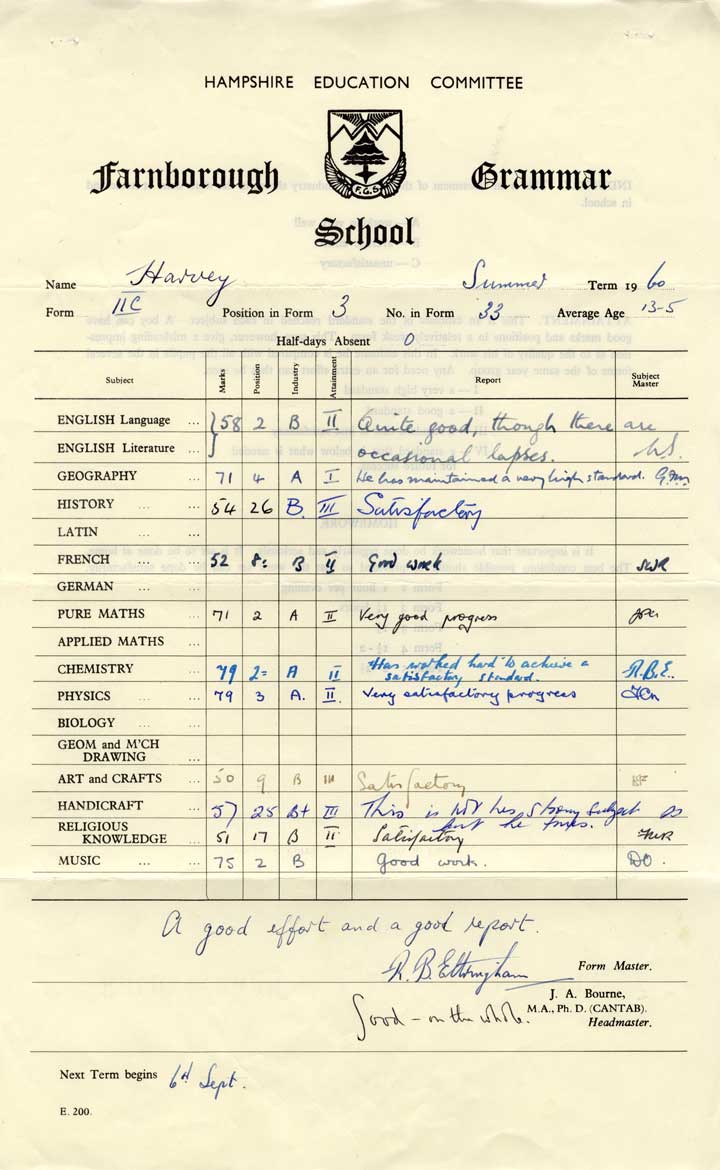 HAMPSHIRE EDUCATION COMMITTEE
F.G.S.
Farnborough Grammar
School
Name Harvey Summer Term 1960
Form IIC Position in Form 3 No. in Form 33 Average Age 13-5
Half-days Absent 0
Subject Marks Position Industry Attainment Report Subject Master
ENGLISH Language ... } 58 2 B II Quite good, though there are
ENGLISH Literature ... occasional lapses.
GEOGRAPHY ... 71 4 A I He has maintained a very high standard. G.M.
HISTORY ... ... 54 26 B. III Satisfactory
LATIN ... ...
FRENCH ... ... 52 8= B II Good work SWR
GERMAN ... ...
PURE MATHS ... 71 2 A II Very good progress
APPLIED MATHS ...
CHEMISTRY ... 79 2= A II Has worked hard to achieve a satisfactory standard. R.B.E.
PHYSICS ... ... 79 3 A. II Very satisfactory progress
BIOLOGY ... ...
GEOM and M'CH
DRAWING ...
ART and CRAFTS ... 50 9 B III Satisfactory
HANDICRAFT ... 57 25 B+ III This is not his strong subject
but he tries.
RELIGIOUS
KNOWLEDGE ... 51 17 B II Satisfactory
MUSIC ... ... 75 2 B Good work. DO.
A good effort and a good report.
R. B. Ettringham Form Master.
J. A. Bourne,
Good - on the whole. M.A., Ph. D. (CANTAB).
Headmaster.
Next Term begins 6th Sept.
E. 200.